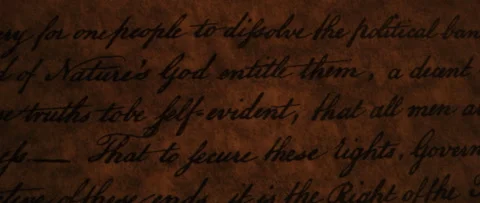 ary for one people to dissolve the political ban
d of Nature's God entitle them, a decent
se truths to be self-evident, that all men ar
ess.— That to secure these rights, Govern
ctive of these ends, it is the Right of the P